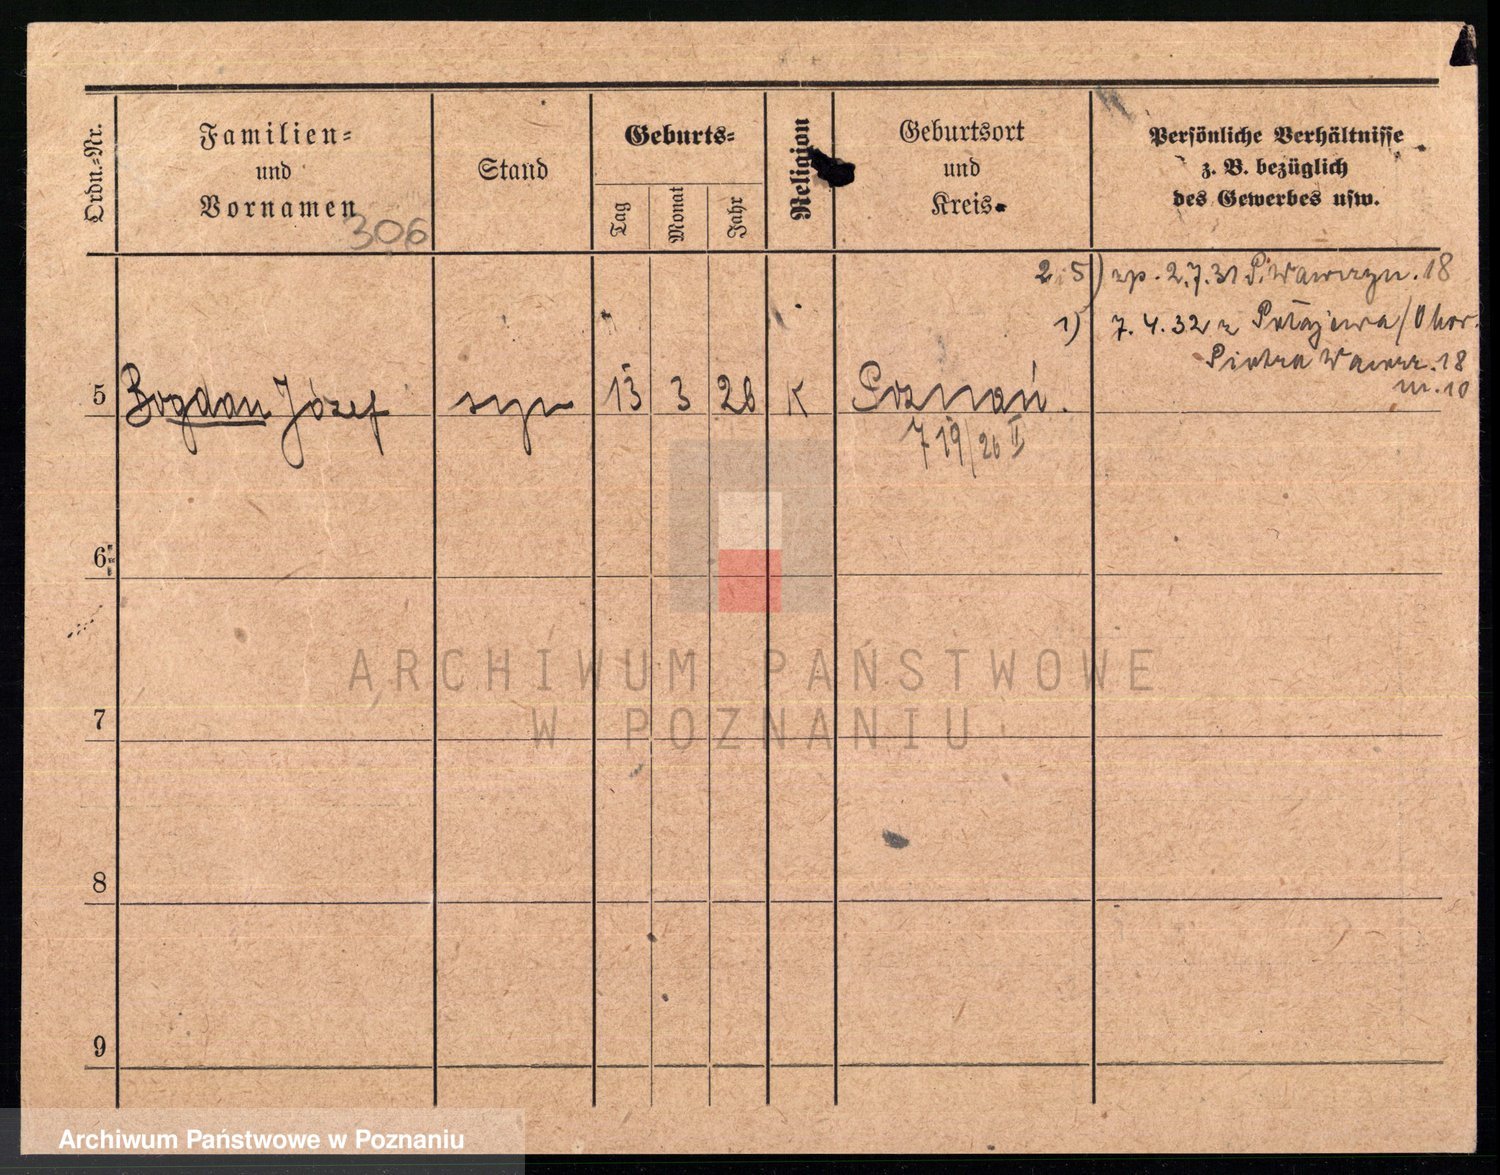 Ordn.-Nr.
Familien-
und
Vornamen
306
Stand
Geburts-
Tag
Monat
Jahr
Religion
Geburtsort
und
Kreis.
Persönliche Verhältnisse
z. B. bezüglich
des Gewerbes usw.
2 5) zp. 2.7.31 P. Wawrzyn. 18
1) 7.4.32 z
18
m. 10
5 Bogdan Józef syn 13 3 26 K Poznań.
719/26 II
6
7
8
9
ARCHIWUM PAŃSTWOWE
W POZNANIU
Archiwum Państwowe w Poznaniu